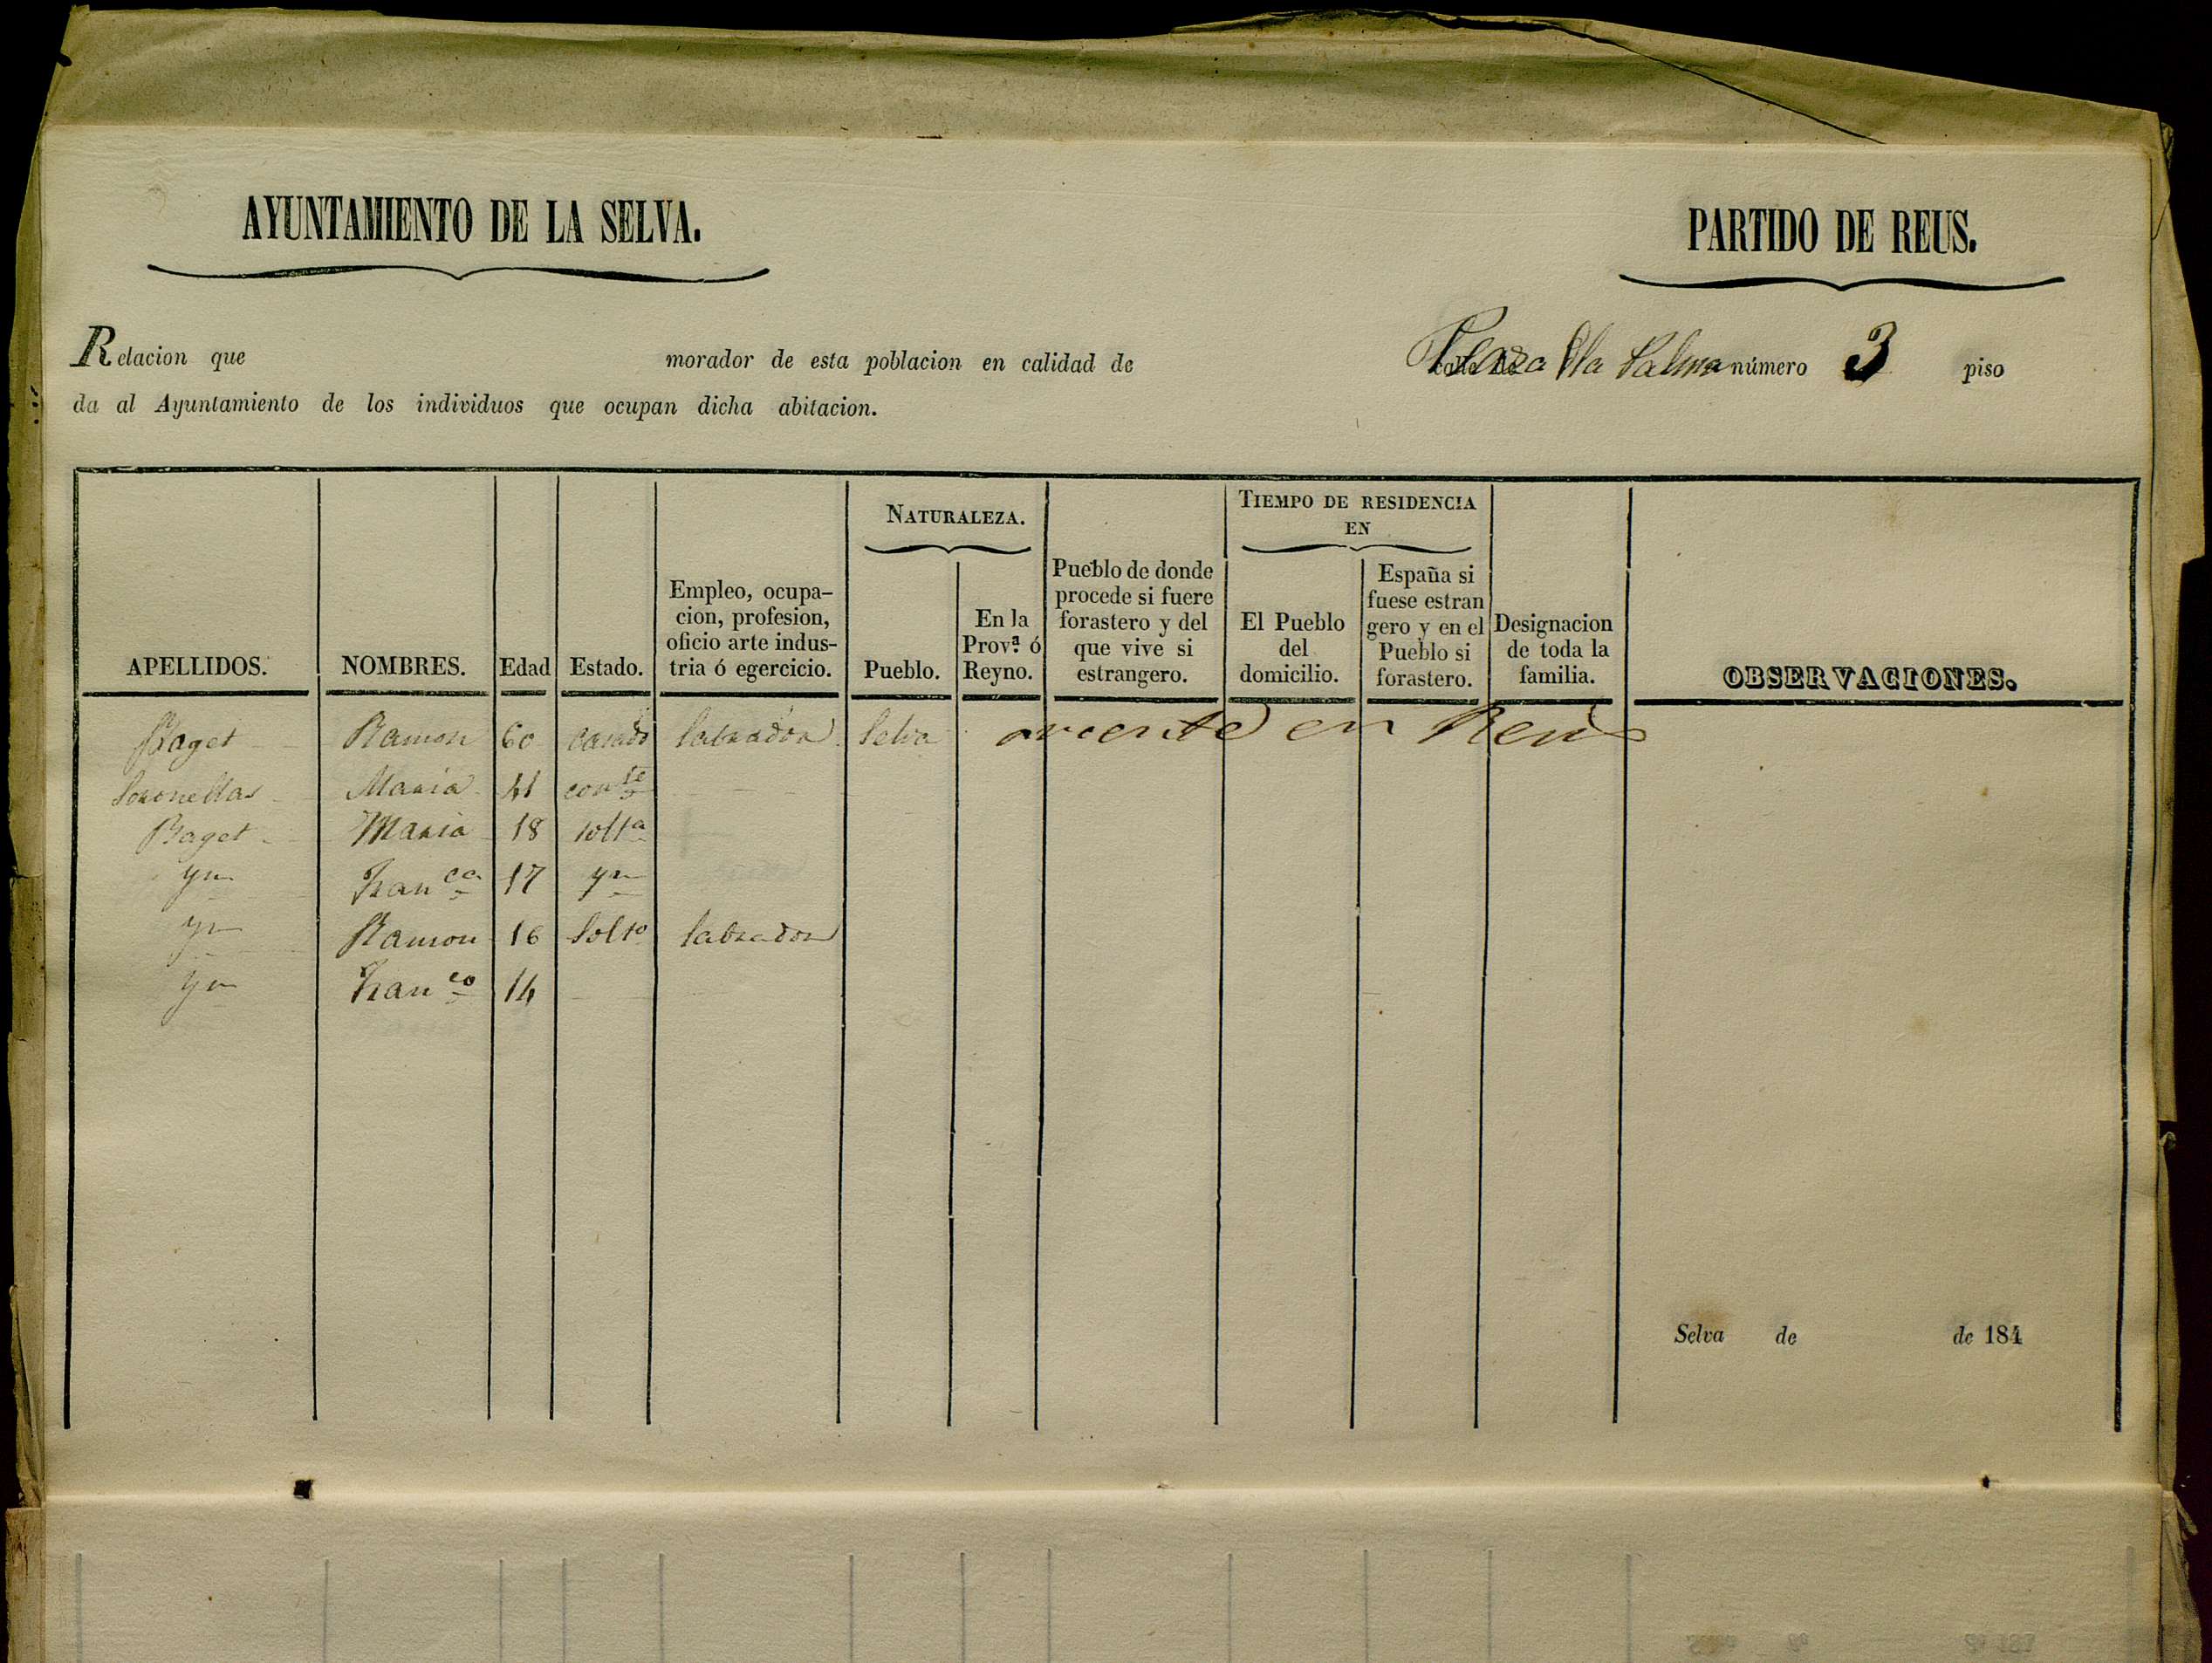 AYUNTAMIENTO DE LA SELVA.
PARTIDO DE REUS.
Relacion que morador de esta poblacion en calidad de Plaza dla Palma número 3 piso
da al Ayuntamiento de los individuos que ocupan dicha abitacion.
APELLIDOS.
NOMBRES.
Edad
Estado.
Empleo, ocupa-
cion, profesion,
oficio arte indus-
tria ó egercicio.
NATURALEZA.
Pueblo.
En la
Prov.ª ó
Reyno.
Pueblo de donde
procede si fuere
forastero y del
que vive si
estrangero.
TIEMPO DE RESIDENCIA
EN
El Pueblo
del
domicilio.
España si
fuese estran
gero y en el
Pueblo si
forastero.
Designacion
de toda la
familia.
OBSERVACIONES.
Baget Ramon 60 casado labrador Selva en Reus
Soronellas Maria 41 conte
Baget Maria 18 solta
yn Franca 17 yn
yn Ramon 16 Solto labrador
yn Franco 14
Selva de de 184